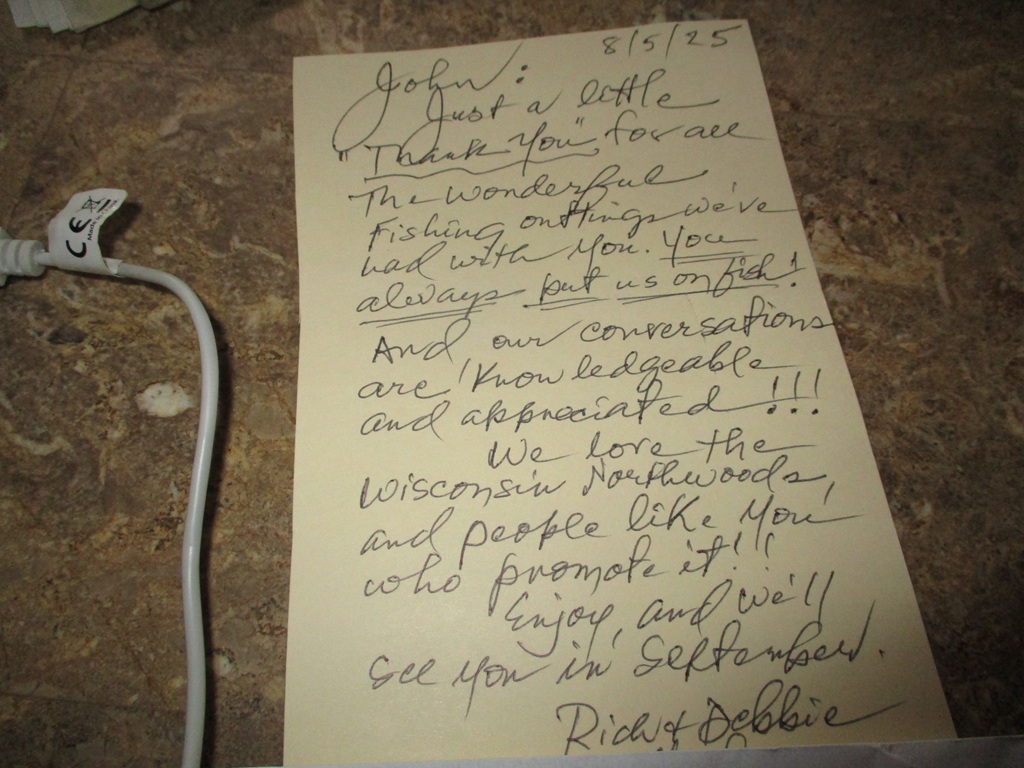 8/5/25
John:
Just a little
"Thank You" for all
The wonderful
Fishing outtings we've
had with you. You
always put us on fish!
And, our conversations
are Knowledgeable
and appreciated!!!
We love the
Wisconsin Northwoods,
and people like you
who promote it!!
Enjoy, and we'll
see you in September.
Rich & Debbie
CE